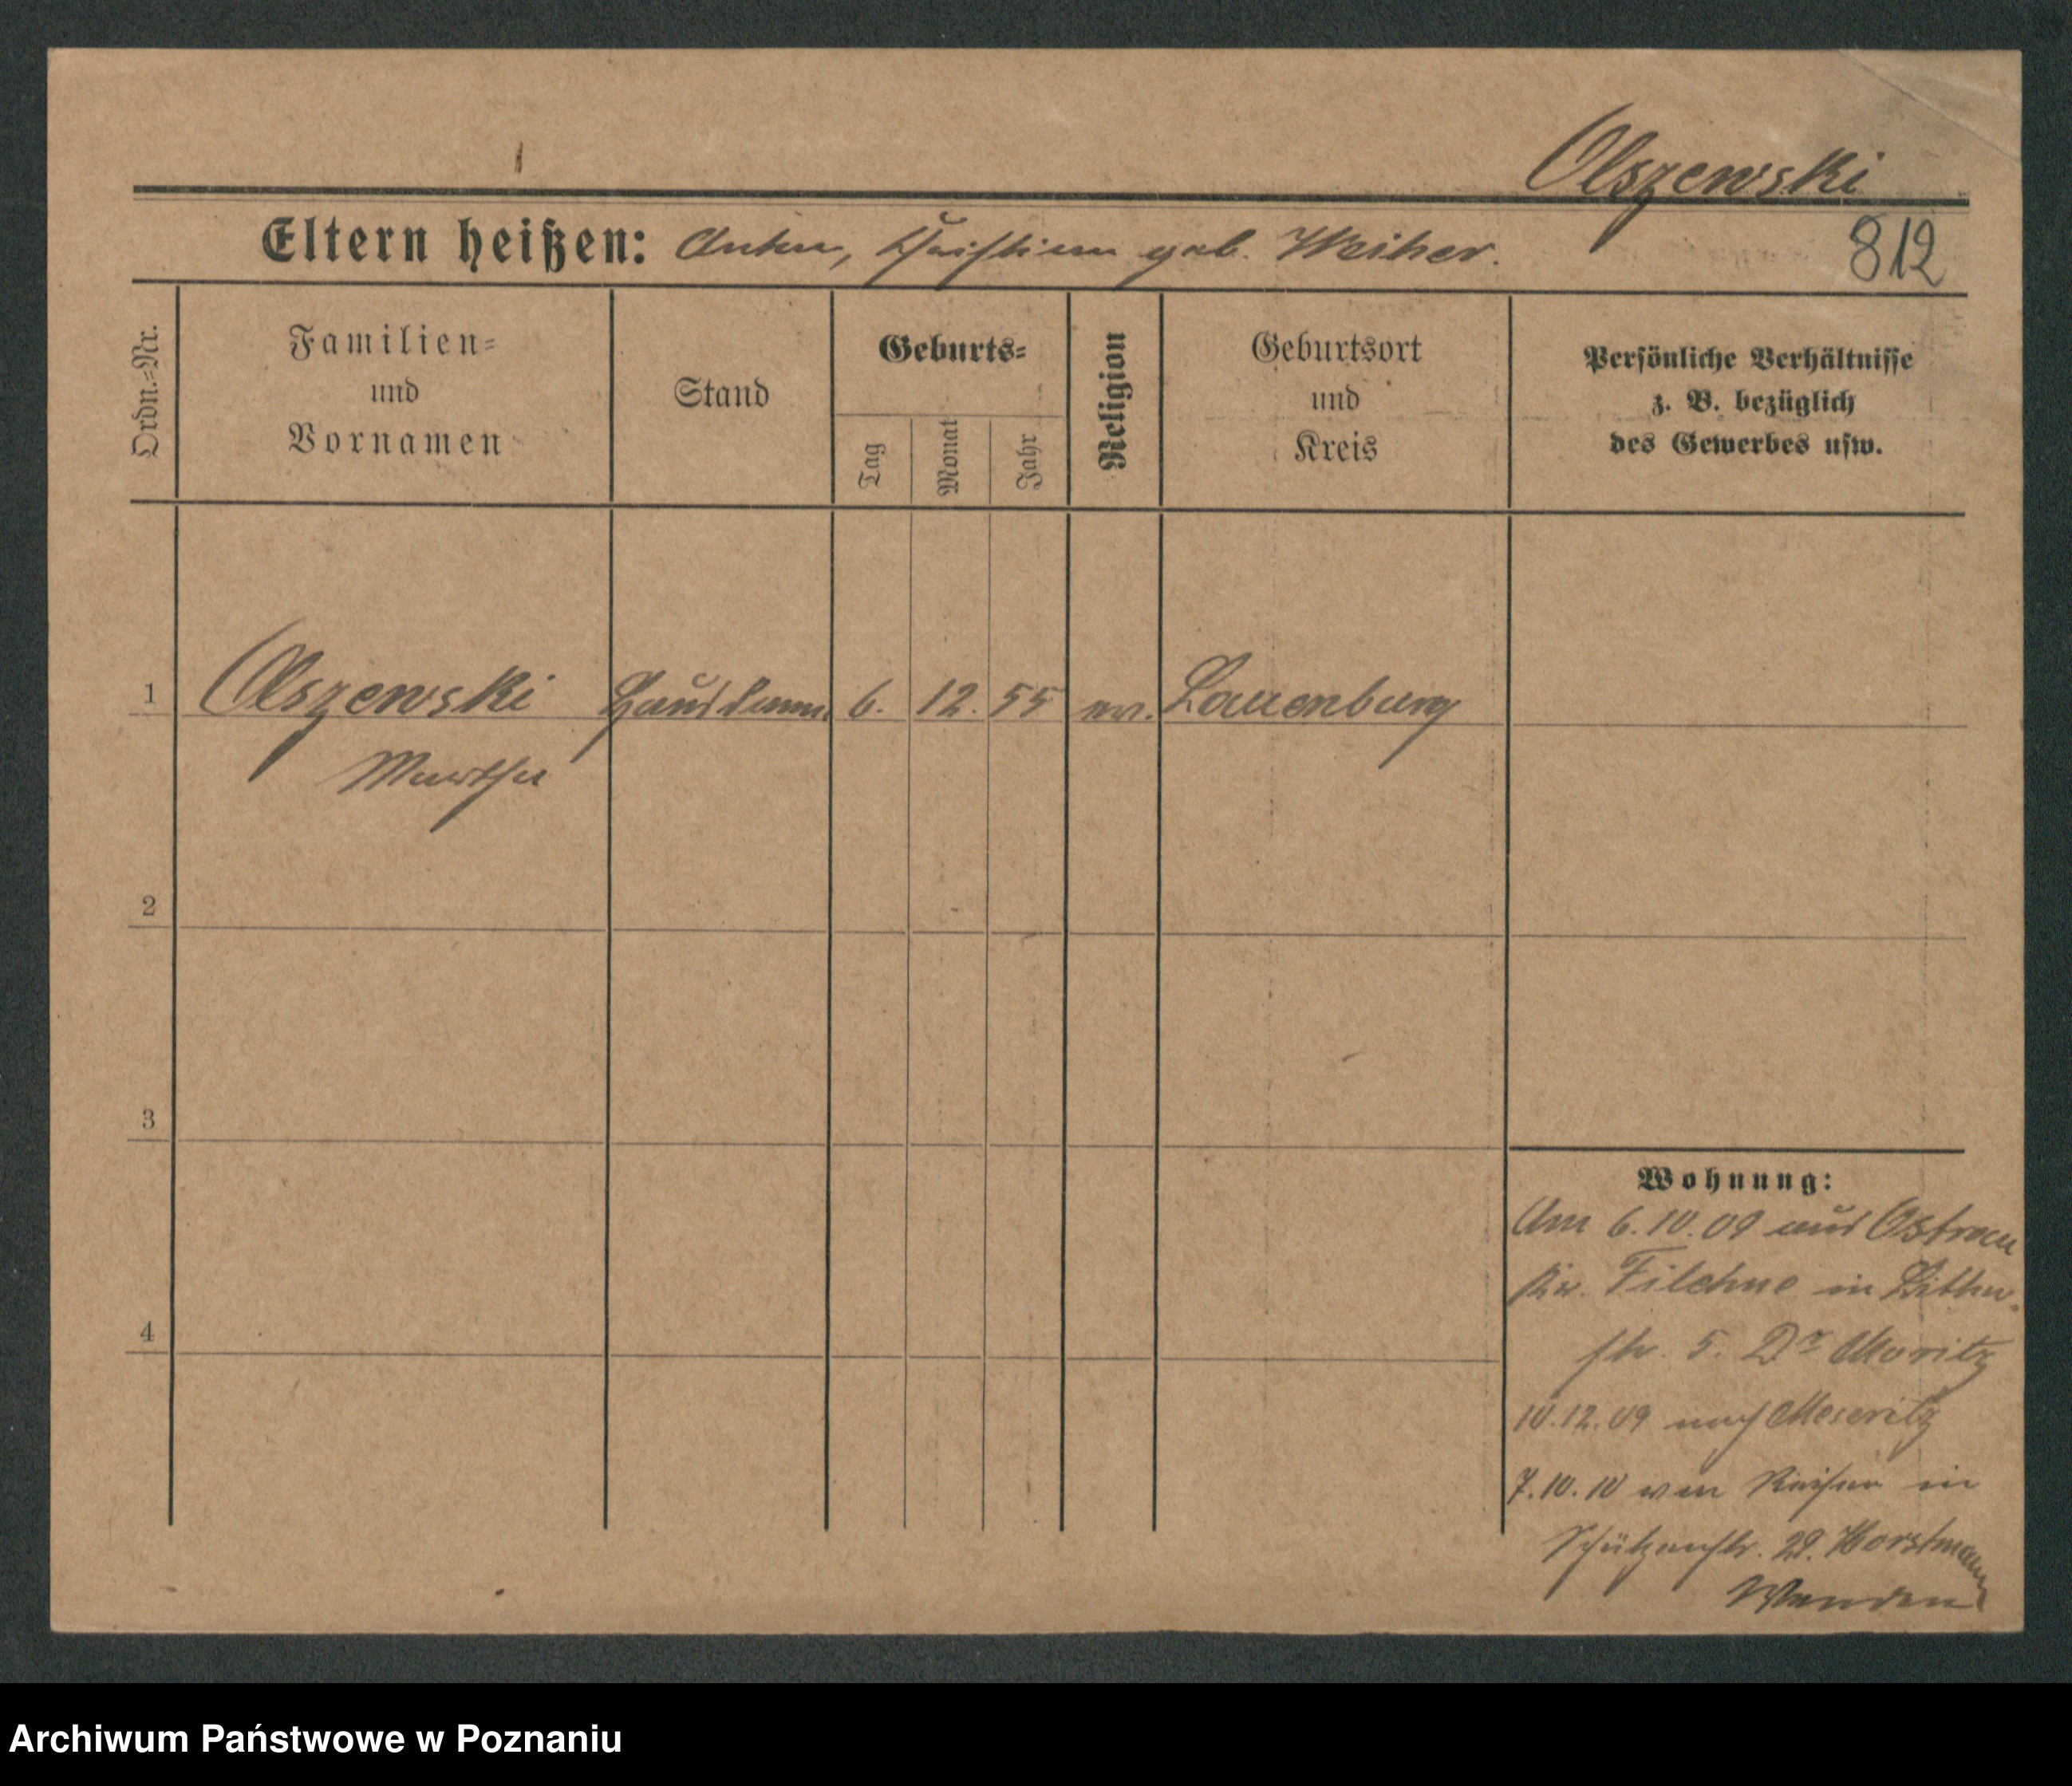 Olszewski
Eltern heißen: Anton, Christine geb. Weiher.
812
Ordn.=Nr.
Familien=
und
Vornamen
Stand
Geburts=
Tag
Monat
Jahr
Religion
Geburtsort
und
Kreis
Persönliche Verhältnisse
z. B. bezüglich
des Gewerbes usw.
1 Olszewski 6. 12. 55 ev. Lauenburg
Martha
2
3
4
Wohnung:
Am 6.10.09 aus Ostrau
Kr. Filehne in
str. 5. Dr Moritz
10.12.09 nach Meseritz
7.10.10 von in
Schützenstr. 29. Horstmann
Archiwum Państwowe w Poznaniu